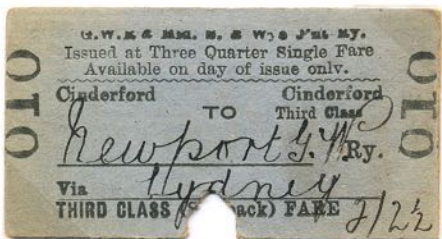 G.W.R & Mid. S. & Wye J'nt Ry.
Issued at Three Quarter Single Fare
Available on day of issue only.
010
010
Cinderford Cinderford
TO Third Class
Newport G.W Ry.
Via Lydney
THIRD CLASS ack) FARE 2/2½